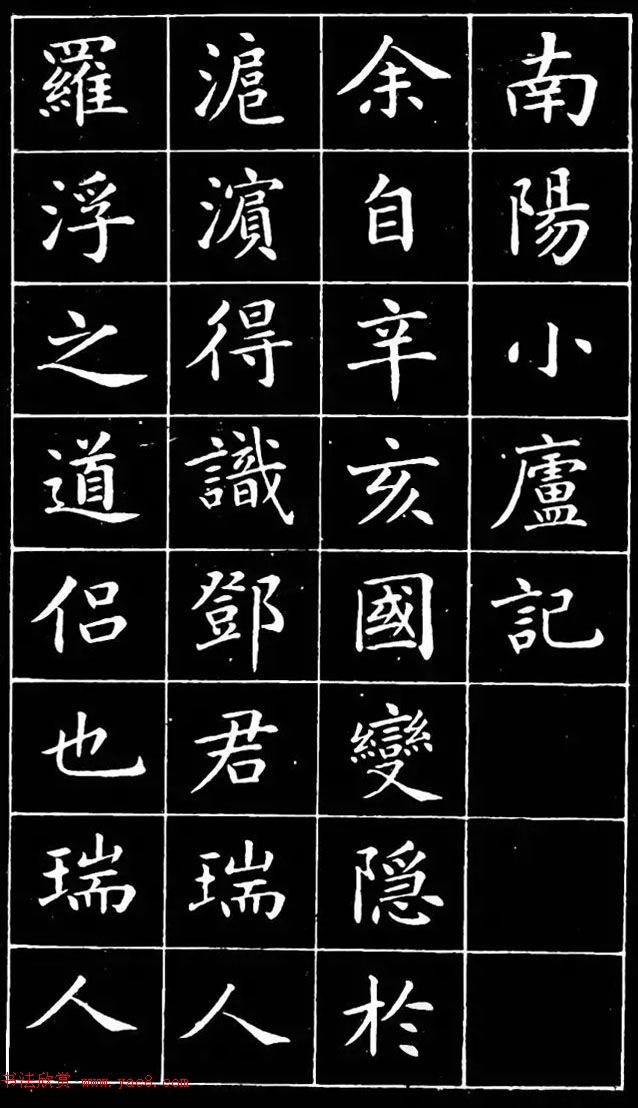 南陽小廬記
余自辛亥國變隱於
滬濱得識鄧君瑞人
羅浮之道侣也瑞人
书法欣赏 www.yac8.com